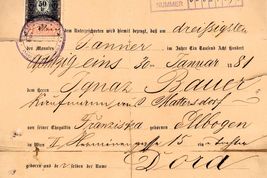 50
NUMMER
dem Unterzeichneten wird hiemit bezeugt, daß am dreißigsten
des Monates Janner im Jahre Ein Tausend Acht Hundert
achtzig eins 30 Januar 1881
dem Herrn Ignaz Bauer
Kaufmann von Mattersdorf
von seiner Ehegattin Franziska gebornen Ellbogen
in Wien gasse 15 eine Tochter
geboren und der selben der Name Dora